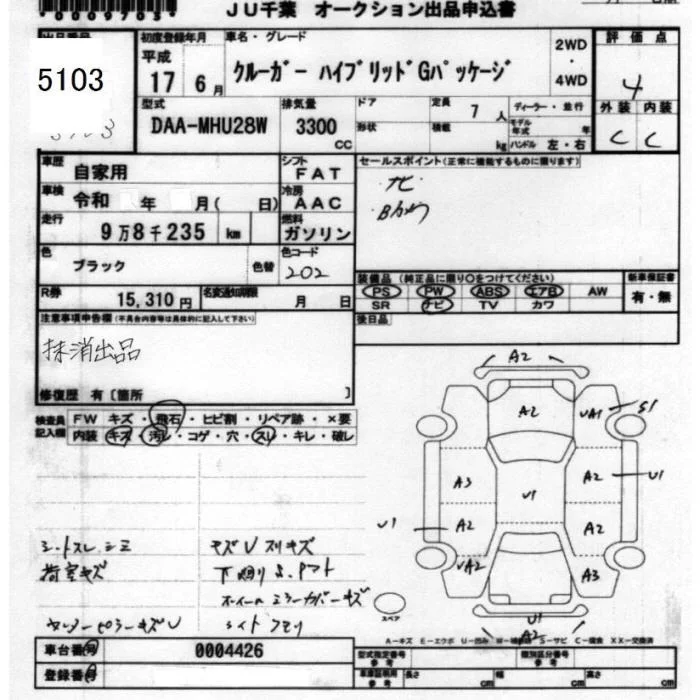 0009703
JU千葉 オークション出品申込書
5103
初度登録年月
平成
17 6月
車名・グレード
クルーガー ハイブリッドGパッケージ
2WD
・
4WD
評価点
4
外装 内装
C C
型式
DAA-MHU28W
排気量
3300
CC
ドア
形状
定員 7 人
積載 kg
ディーラー・並行
モデル年式 年
ハンドル 左・右
車歴
自家用
シフト
FAT
車検
令和 年 月( 日)
冷房
AAC
走行
9万8千235 km
燃料
ガソリン
色
ブラック
色替
色コード
202
R券
15,310円
名変通知期限
月 日
セールスポイント(正常に機能するものに限ります)
・ナビ
・Bカメラ
装備品 (純正品に限り○をつけてください)
PS PW ABS エアB AW
SR ナビ TV カワ
新車保証書
有・無
後日品
注意事項申告欄(不具合内容等は具体的に記入して下さい)
抹消出品
修復歴 有[箇所 ]
検査員記入欄
FW キズ・飛石・ヒビ割・リペア跡・×要
内装 キズ・汚レ・コゲ・穴・スレ・キレ・破レ
シートスレ、シミ
荷室キズ
キズU スリキズ
下廻りS、Pマト
ホイール ミラーカバーキズ
センターピラーキズU
ライト クモリ
A2
A2
UA1
S1
A3
A2
U1
U1
U1
A2
A2
UA2
A3
U1
A2
スペア
A-キズ E-エクボ U-凹み W-補修跡 S-サビ C-腐食 XX-交換済
車台番号
0004426
登録番号
型式指定番号
参考
類別区分番号
参考
車庫証明用
参考
長さ cm
幅 cm
高さ cm